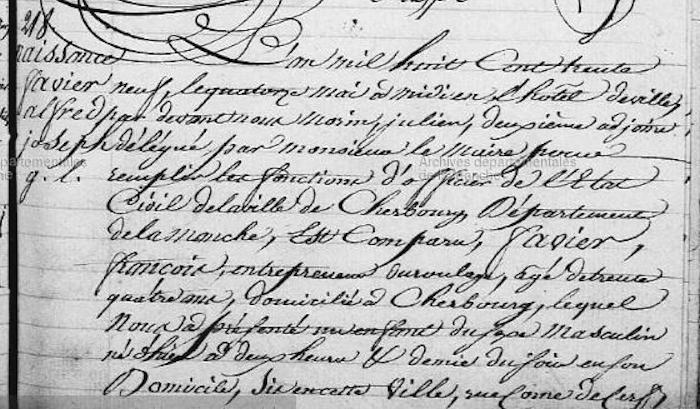 218
naissance
Javier
alfred
joseph
g. l.
L'an mil huit Cent trente
neuf, le quatorze mai à midi en l'hôtel de ville,
par devant nous Morin, julien, deuxième adjoint
délégué par monsieur le Maire pour
remplir les fonctions d'officier de l'Etat
Civil de la ville de Cherbourg, Département
de la Manche, Est Comparu, Javier,
françois, entrepreneur du roulage, agé de trente
quatre ans, domicilié à Cherbourg, lequel
Nous a présenté un enfant du sexe Masculin
né hier à deux heures & demie du soir en son
Domicile, sis en cette Ville, rue Corne de Cerf,
Archives départementales
Manche